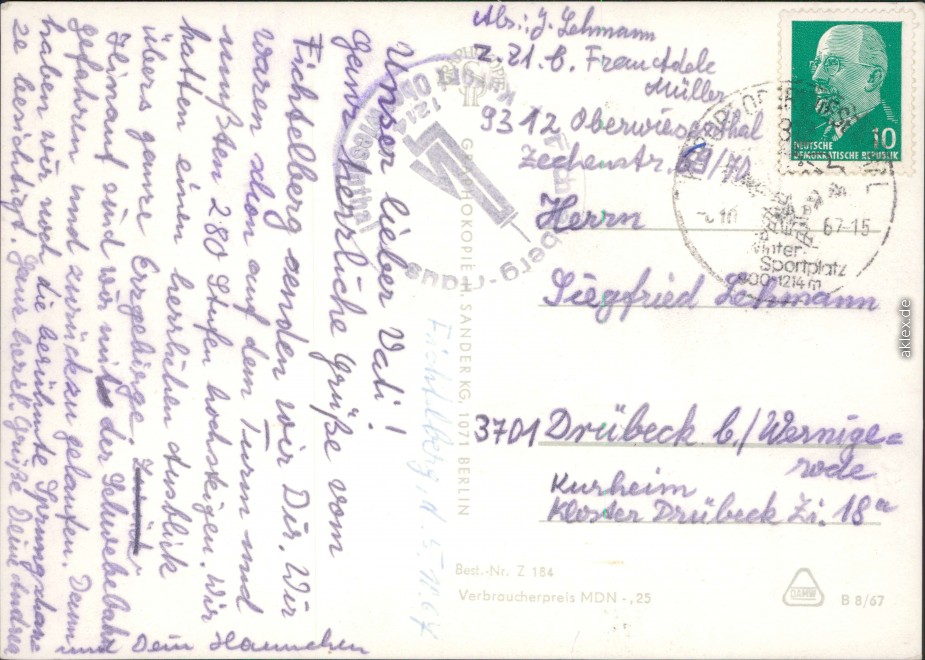 Abs.: J. Lehmann
z. Zt. b. Frau Adele
Müller
9312 Oberwiesenthal
Zechenstr. 69/70
Herrn
Siegfried Lehmann
3701 Drübeck b./Wernige=
rode
Kurheim
Kloster Drübeck Zi. 18a
Unser lieber Vati!
Ganz herzliche Grüße vom
Fichtelberg senden wir Dir. Wir
waren schon auf dem Turm und
mußten 280 Stufen hochsteigen. Wir
hatten einen herrlichen Ausblick
übers ganze Erzgebirge.
Hinauf sind wir mit der Schwebebahn
gefahren und zurück zu gelaufen. Dann
haben wir noch die berühmte Sprungschan
ze besichtigt. Ganz herzl. Grüße Deine Andrea
und Dein Hannchen
Fichtelberg, d. 5.10.67
GRAPHOKOPIE H. SANDER KG, 1071 BERLIN
Best.-Nr. Z 184
Verbraucherpreis MDN -,25
DAMW
B 8/67
10
DEUTSCHE
DEMOKRATISCHE REPUBLIK
67-15
Winter
Sportplatz
900-1214 m
1214
berg-Haus
aklex.de